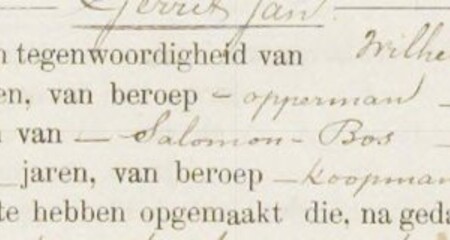 Gerrit Jan.
n tegenwoordigheid van Wilhe
en, van beroep - opperman -
n van - Salomon - Bos -
jaren, van beroep - koopman
te hebben opgemaakt die, na geda